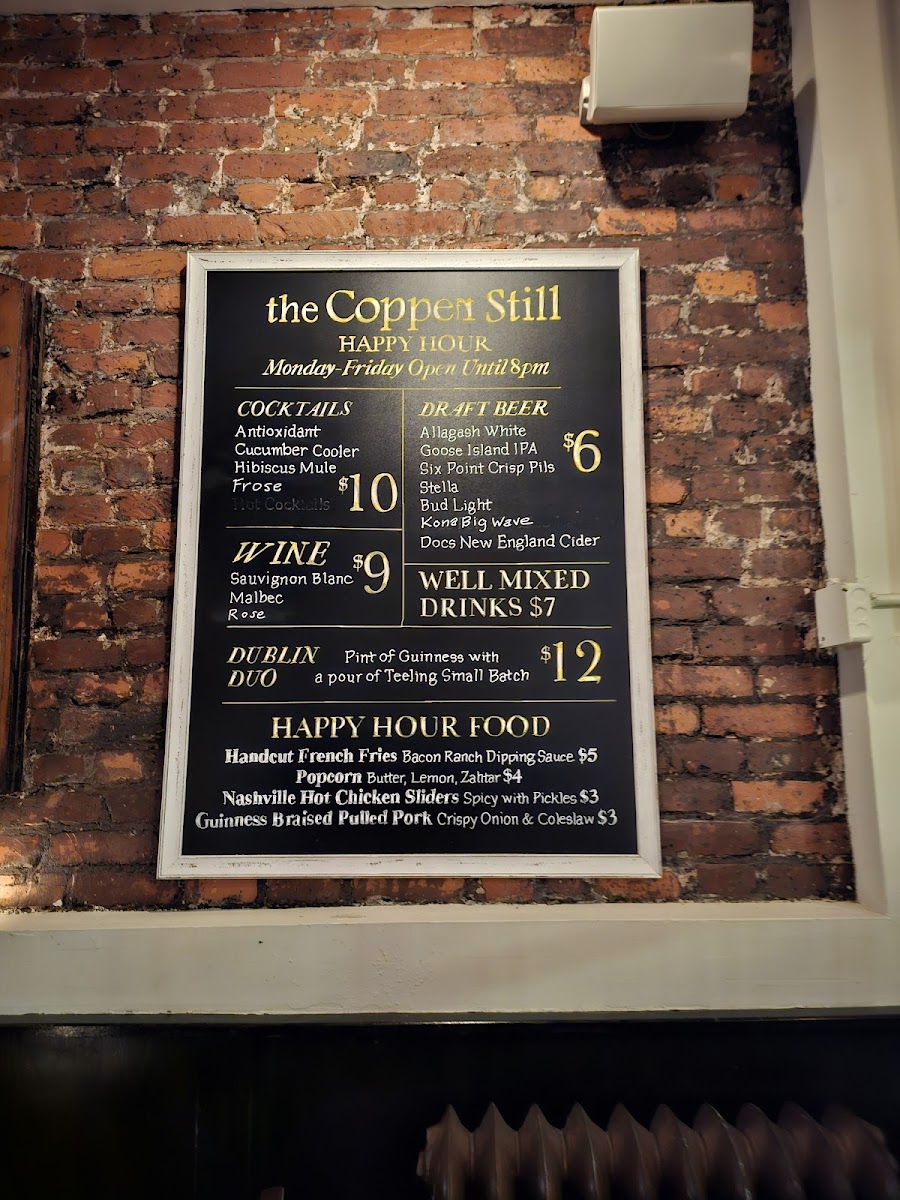 the Copper Still
HAPPY HOUR
Monday-Friday Open Until 8pm
COCKTAILS
Antioxidant
Cucumber Cooler
Hibiscus Mule
Frose
Hot Cocktails
$10
WINE
Sauvignon Blanc
Malbec
Rose
$9
DRAFT BEER
Allagash White
Goose Island IPA
Six Point Crisp Pils
Stella
Bud Light
Kona Big Wave
Docs New England Cider
$6
WELL MIXED
DRINKS $7
DUBLIN DUO
Pint of Guinness with
a pour of Teeling Small Batch
$12
HAPPY HOUR FOOD
Handcut French Fries Bacon Ranch Dipping Sauce $5
Popcorn Butter, Lemon, Zahtar $4
Nashville Hot Chicken Sliders Spicy with Pickles $3
Guinness Braised Pulled Pork Crispy Onion & Coleslaw $3